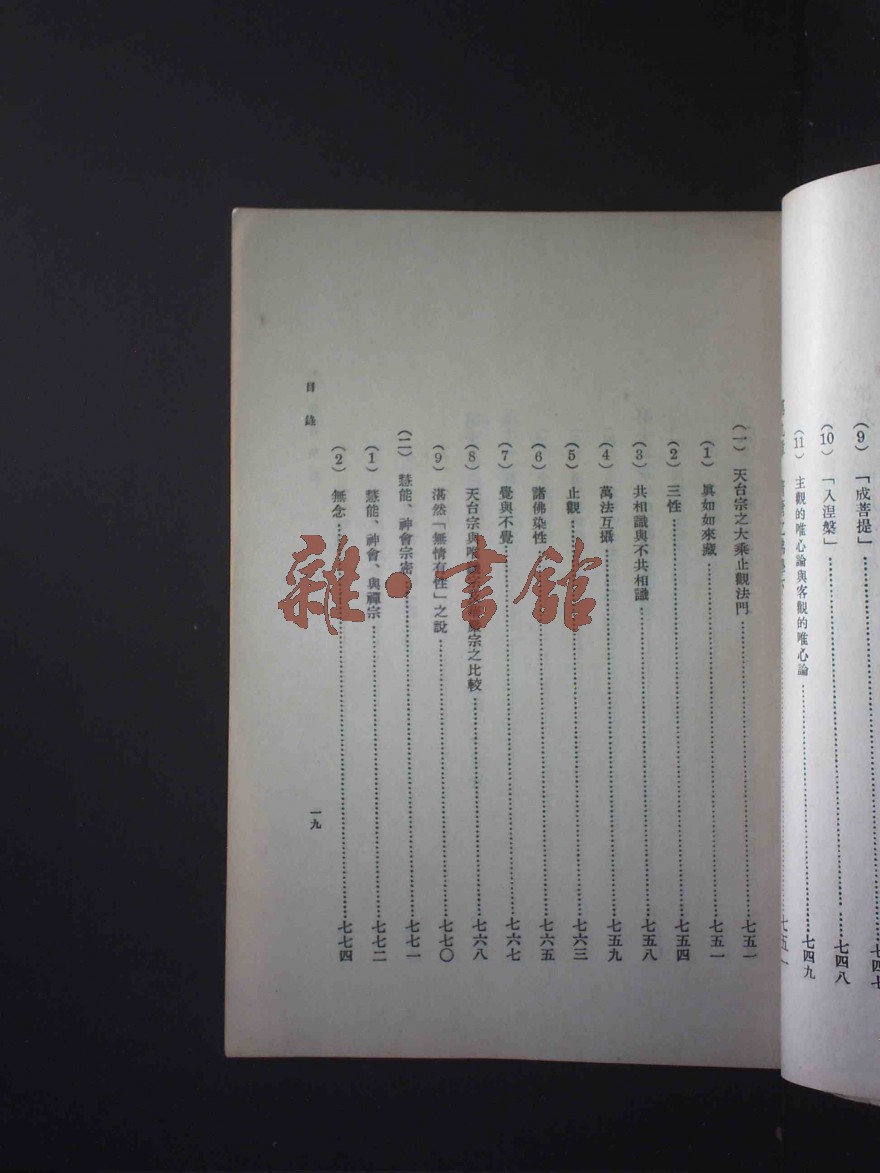 (9)「成菩提」………七四七
(10)「入涅槃」………七四八
(11)主觀的唯心論與客觀的唯心論………七四九
七五一
(一)天台宗之大乘止觀法門………七五一
(1)眞如如來藏………七五一
(2)三性………七五四
(3)共相識與不共相識………七五八
(4)萬法互攝………七五九
(5)止觀………七六三
(6)諸佛染性………七六五
(7)覺與不覺………七六七
(8)天台宗與唯識宗之比較………七六八
(9)湛然「無情有性」之說………七七〇
(二)慧能、神會宗密………七七一
(1)慧能、神會、與禪宗………七七二
(2)無念………七七四
目錄
一九
雜·書館